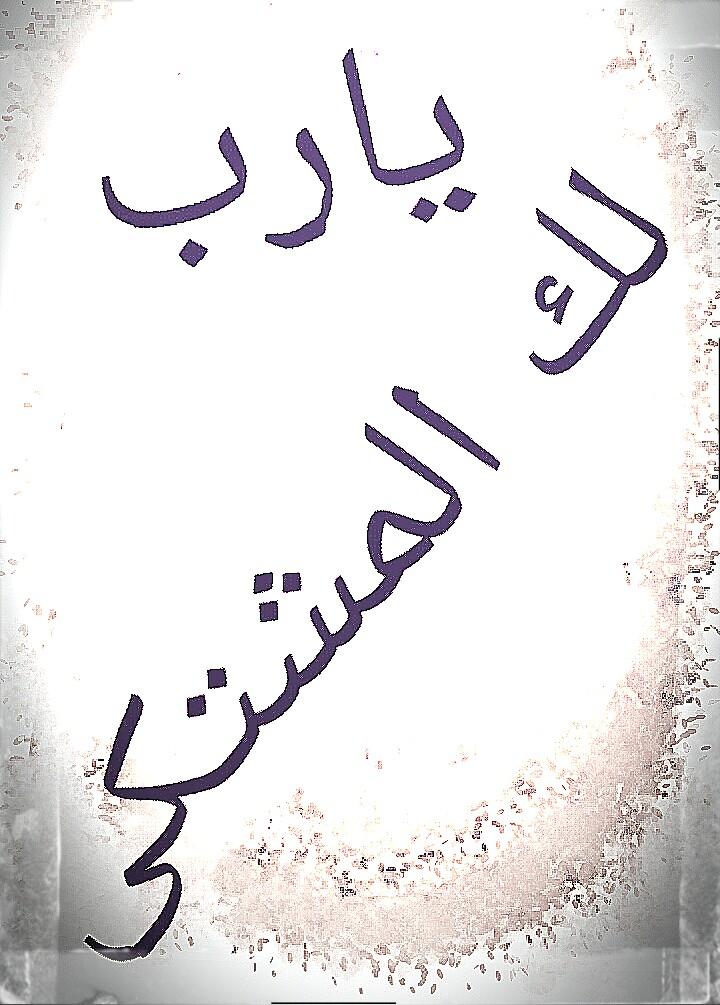 يارب
لك
المشتكى